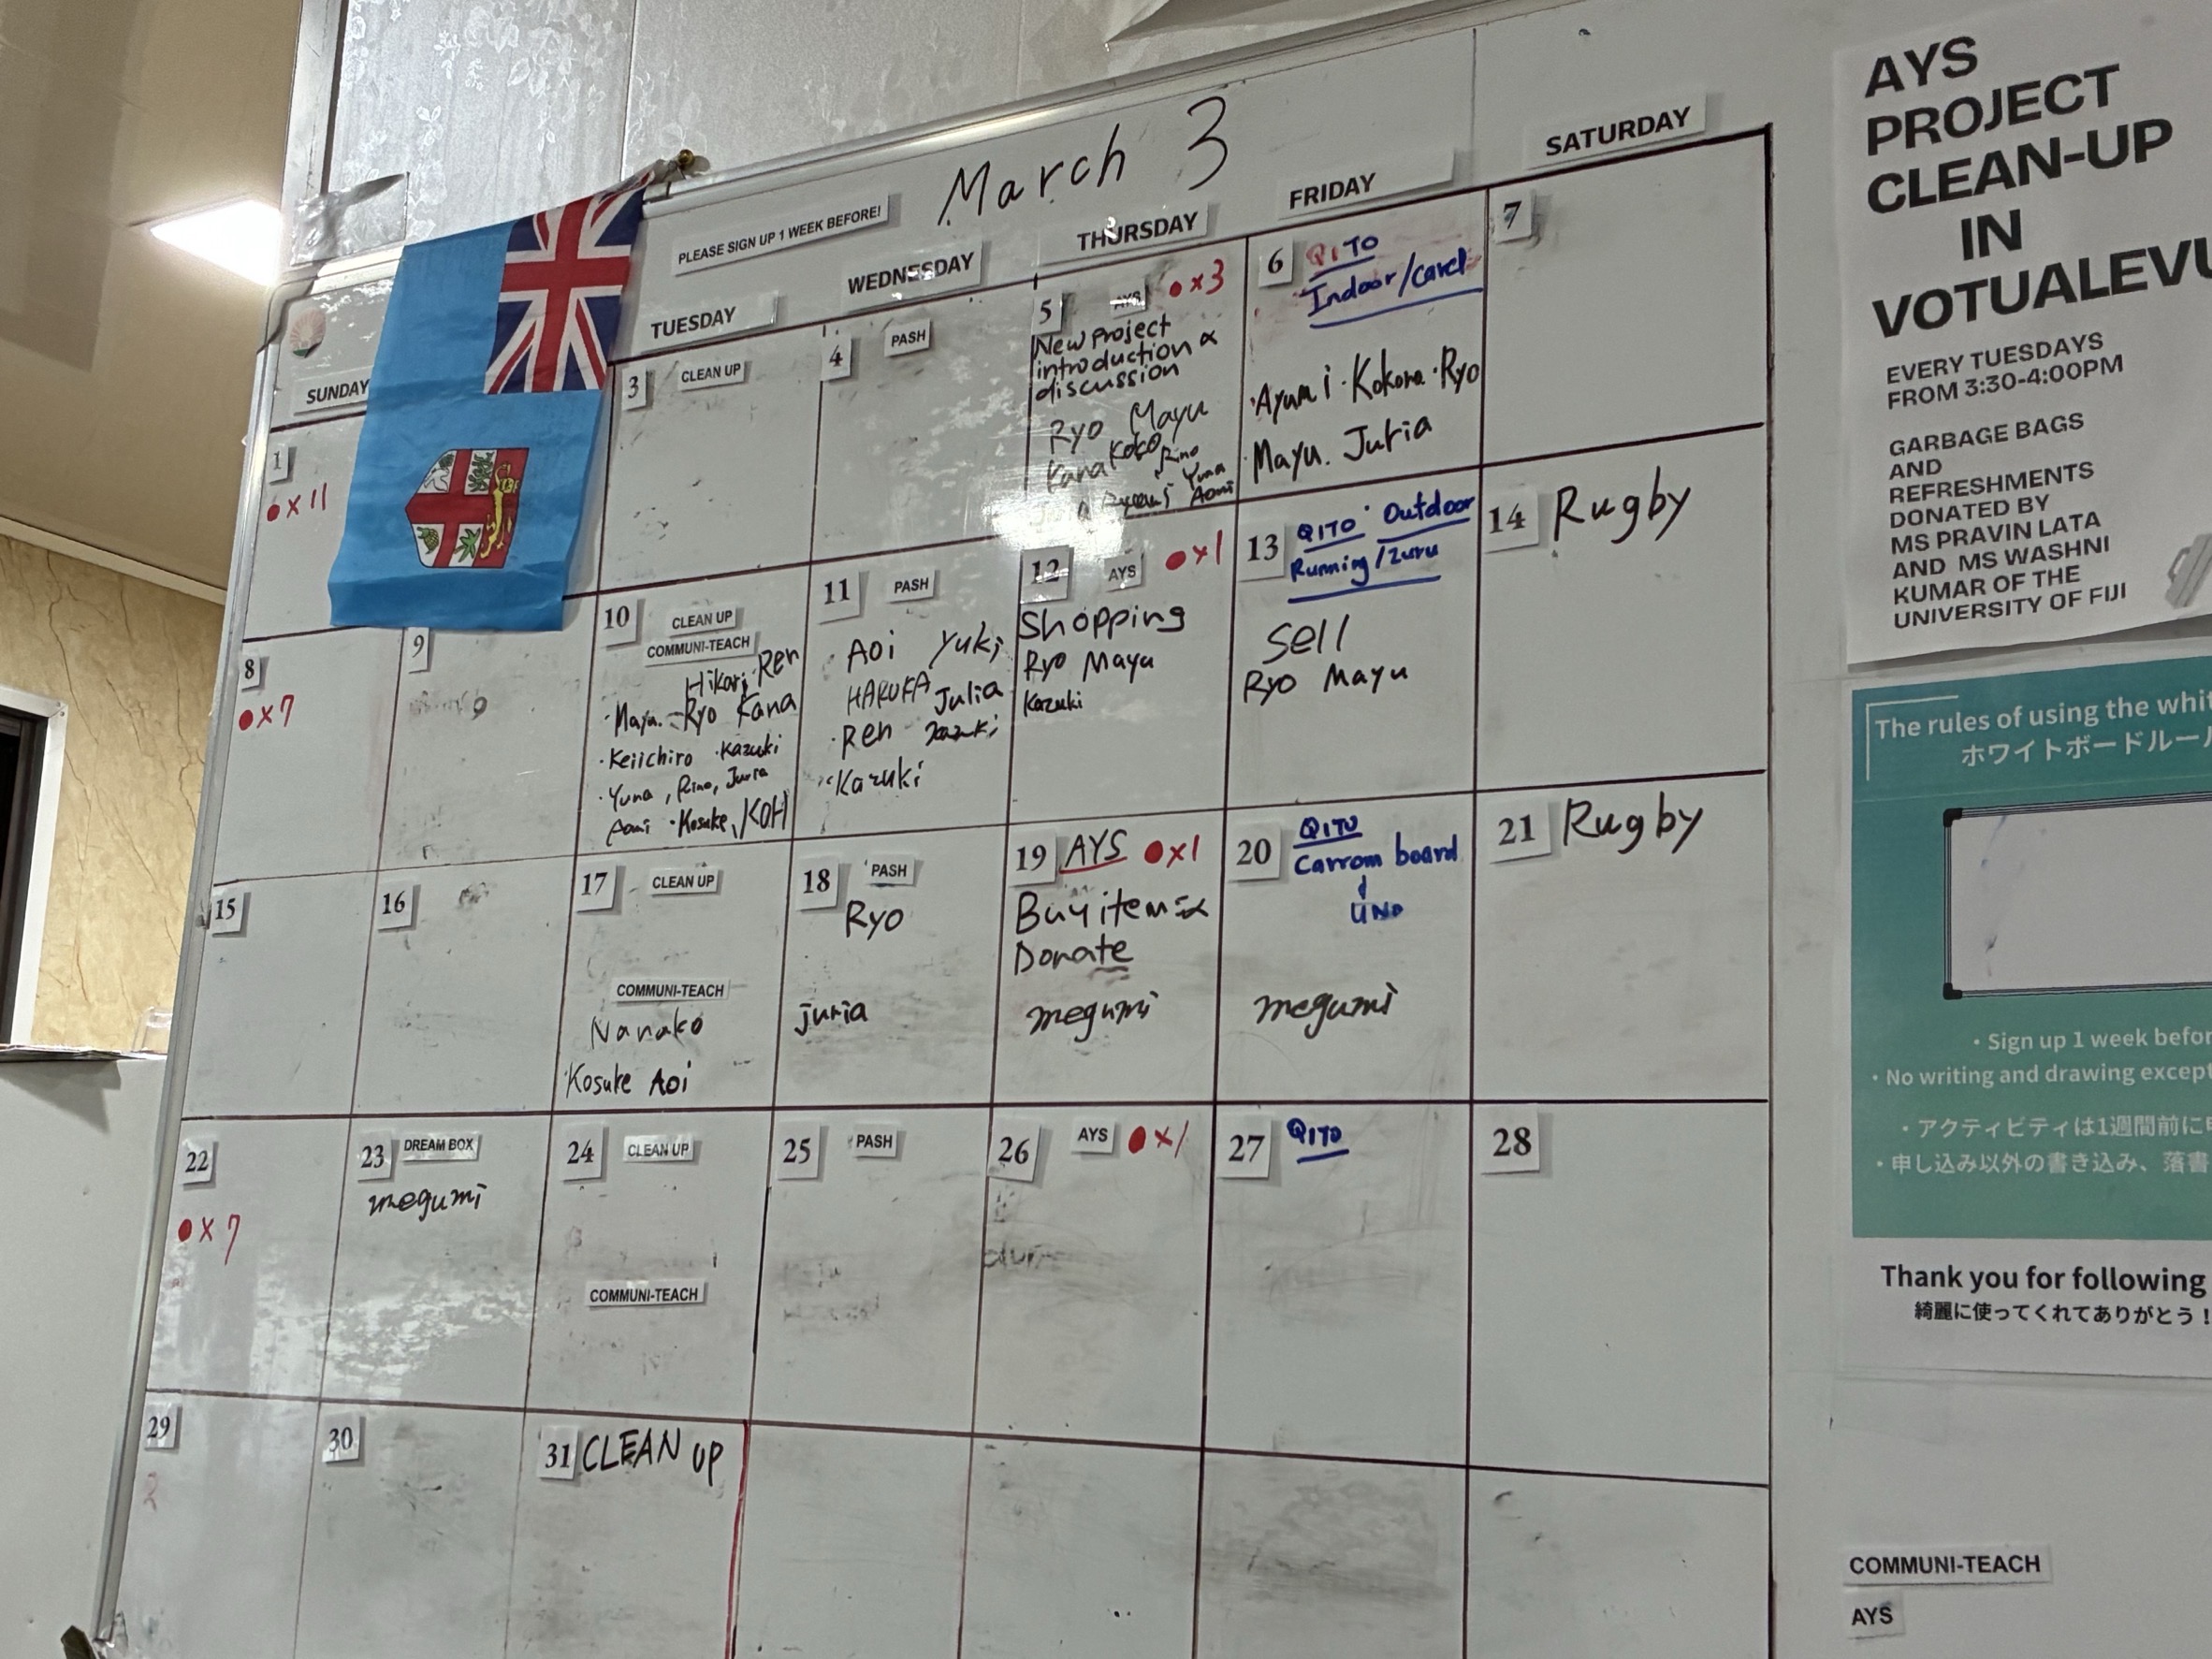 March 3
PLEASE SIGN UP 1 WEEK BEFORE!
SUNDAY
TUESDAY
WEDNESDAY
THURSDAY
FRIDAY
SATURDAY
1
●×11
3 CLEAN UP
4 PASH
5 AYS ●×3
New Project
introduction &
discussion
Ryo Mayu
Kana Koko Rino
Yuna
Aomi
6 QITO
Indoor/
·Ayumi·Kokona·Ryo
·Mayu. Juria
7
8
●×7
9
10 CLEAN UP
COMMUNI-TEACH
Hikari Ren
·Mayu. Ryo Kana
·Keiichiro ·Kazuki
·Yuna, Rino, Juria
Aomi ·Kosuke, KOH
11 PASH
Aoi Yuki
HARUKA Julia
·Ren
·Kazuki
12 AYS ●×1
Shopping
Ryo Mayu
Kazuki
13 QITO Outdoor
Running/
Sell
Ryo Mayu
14 Rugby
15
16
17 CLEAN UP
COMMUNI-TEACH
Nanako
Kosuke Aoi
18 PASH
Ryo
juria
19 AYS ●×1
Buy items &
Donate
megumi
20 QITO
Carrom board
UNO
megumi
21 Rugby
22
●×7
23 DREAM BOX
megumi
24 CLEAN UP
COMMUNI-TEACH
25 PASH
26 AYS ●×1
27 QITO
28
29
2
30
31 CLEAN UP
AYS
PROJECT
CLEAN-UP
IN
VOTUALEVU
EVERY TUESDAYS
FROM 3:30-4:00PM
GARBAGE BAGS
AND
REFRESHMENTS
DONATED BY
MS PRAVIN LATA
AND MS WASHNI
KUMAR OF THE
UNIVERSITY OF FIJI
The rules of using the whit
ホワイトボードルール
・Sign up 1 week befor
・No writing and drawing except
・アクティビティは1週間前に
・申し込み以外の書き込み、落書
Thank you for following
綺麗に使ってくれてありがとう！
COMMUNI-TEACH
AYS